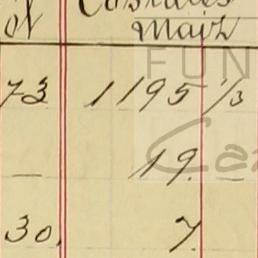 of Costales
Maiz
73 1195 1/3
— 19. —
30. 7.
FUN
Ca